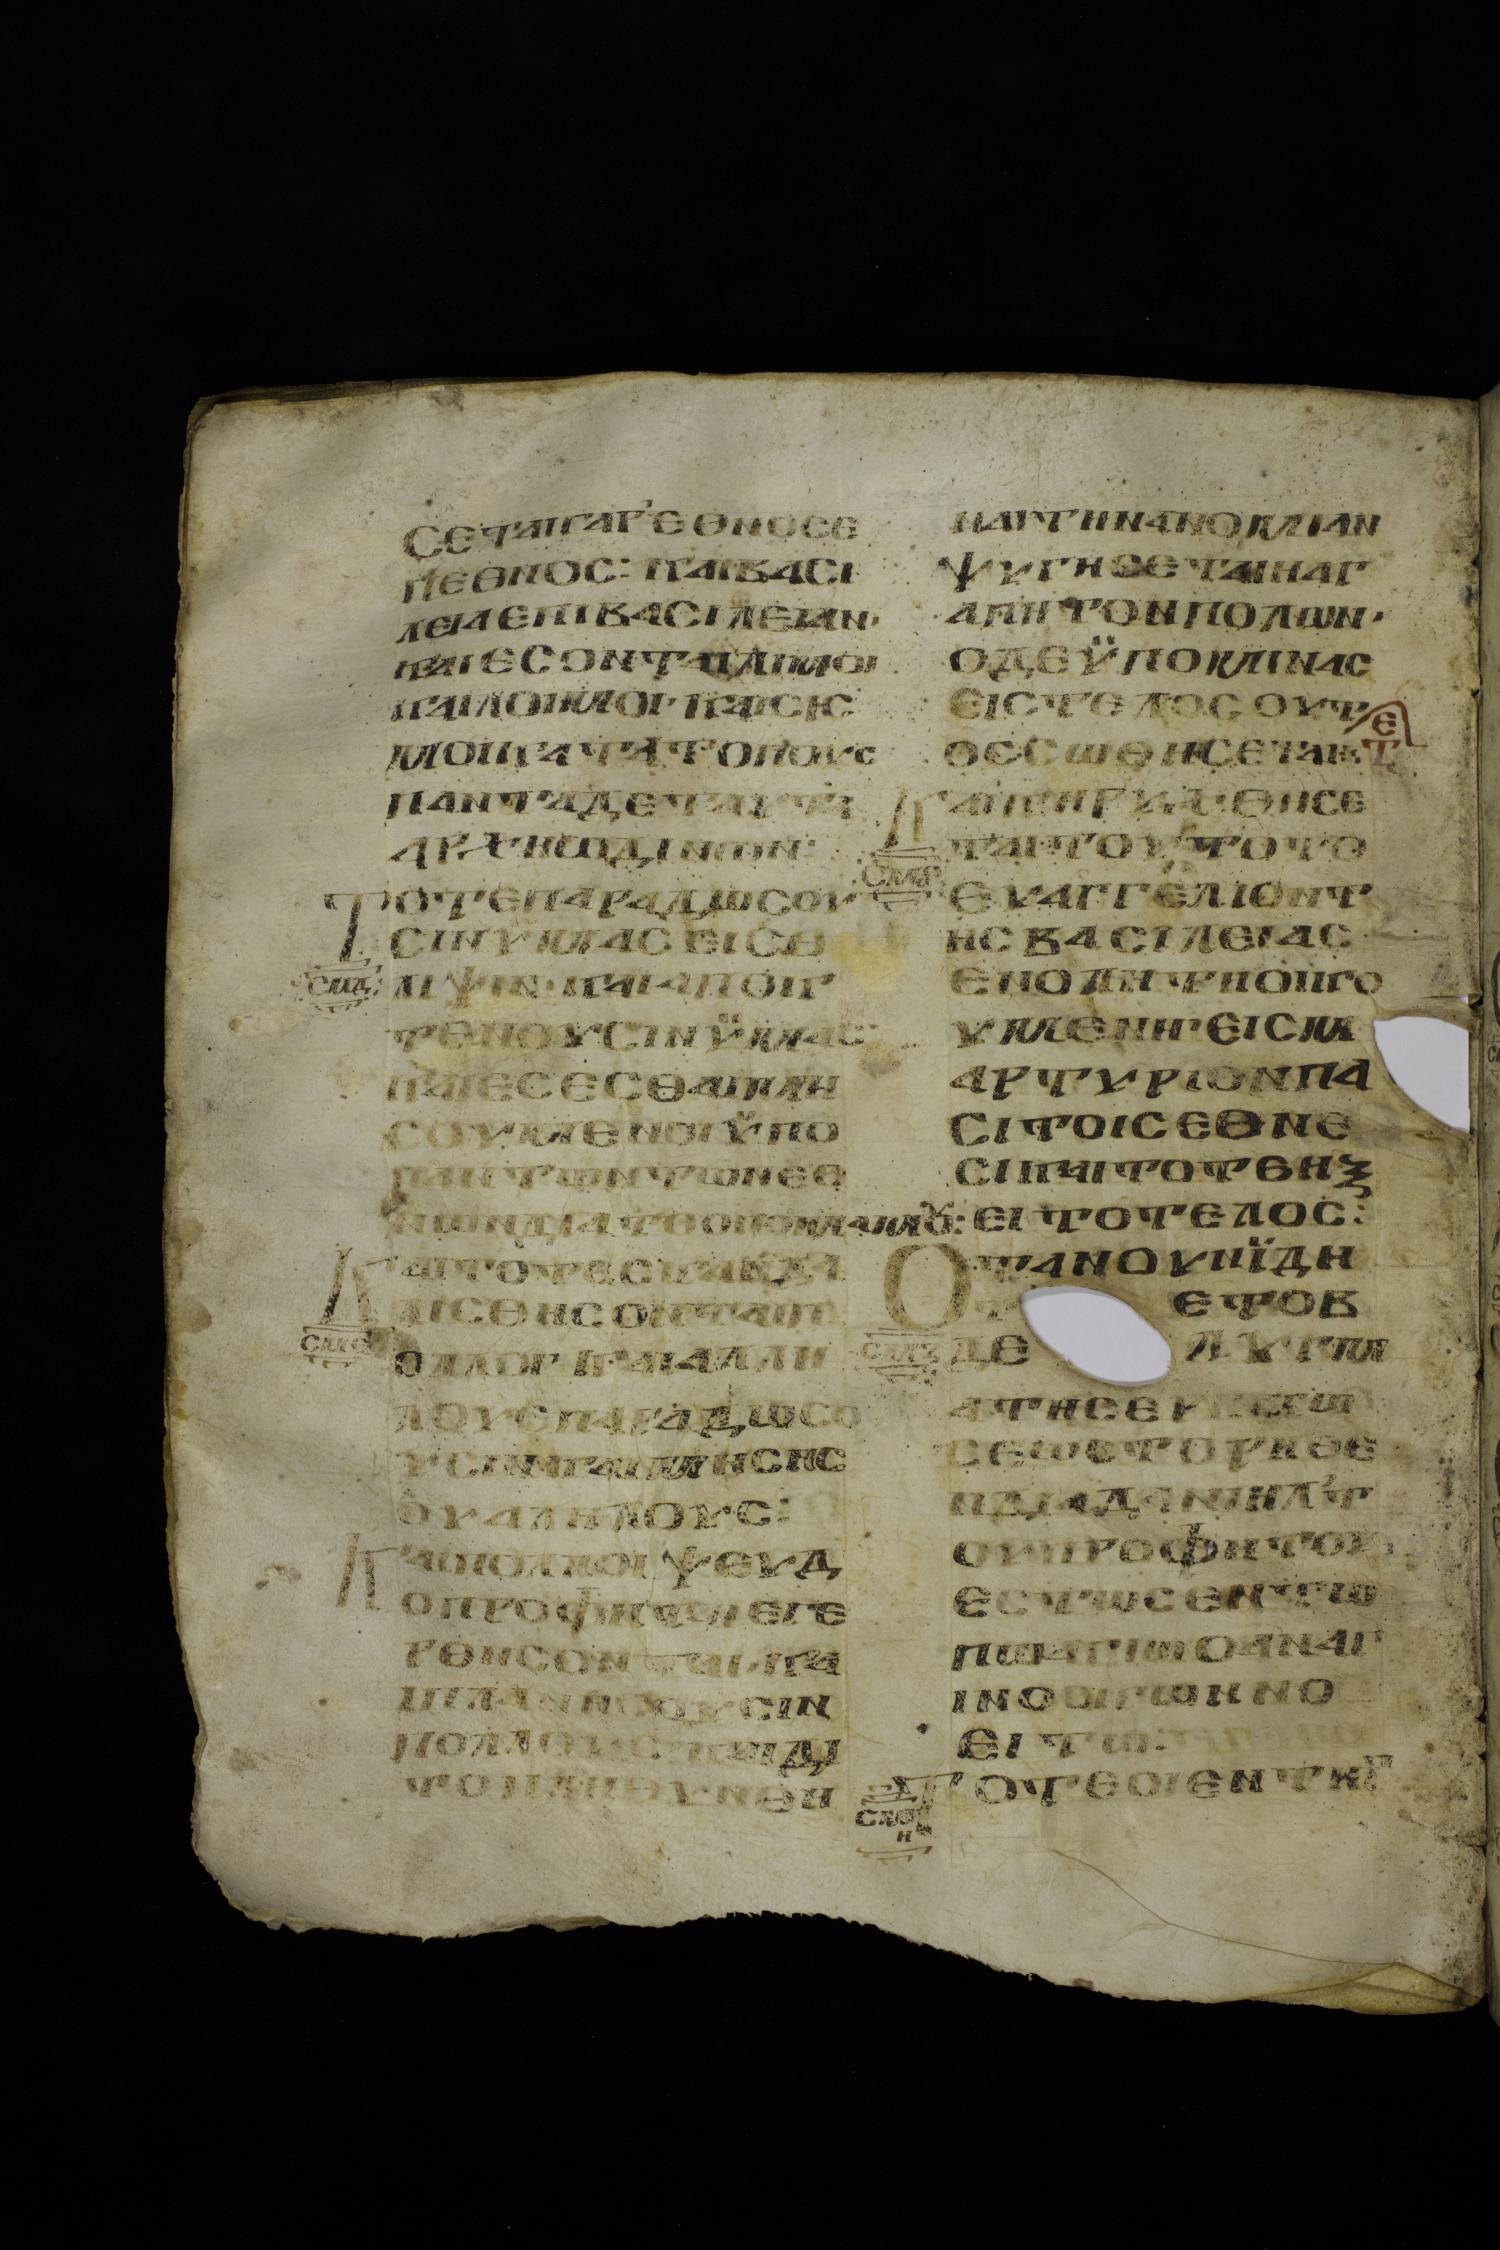 ΣΕΤΑΙΓΑΡΕΘΝΟΣΕ
ΠΕΘΝΟΣ: ΚΑΙΒΑΣΙ
ΛΕΙΑΕΠΙΒΑΣΙΛΕΙΑΝ·
ΚΑΙΕΣΟΝΤΑΙΛΙΜΟΙ
ΚΑΙΛΟΙΜΟΙ·ΚΑΙΣΙΣ
ΜΟΙΚΑΤΑΤΟΠΟΥΣ
ΠΑΝΤΑΔΕΤΑΥΤΑ
ΑΡΧΗΩΔΙΝΩΝ:
ΤΟΤΕΠΑΡΑΔΩΣΟΥ
ΣΙΝΥΜΑΣΕΙΣΘ
ΣΜΔ: ΛΙΨΙΝ·ΚΑΙΑΠΟΚ
ΤΕΝΟΥΣΙΝΫΜΑΣ
ΚΑΙΕΣΕΣΘΑΙΜΗ
ΣΟΥΜΕΝΟΙΫΠΟ
ΠΑΝΤΩΝΤΩΝΕΘ
ΝΩΝΔΙΑΤΟΟΝΟΜΑΜΟΥ:
ΚΑΙΤΟΤΕΣΚΑΝΔΑ
ΛΙΣΘΗΣΟΝΤΑΙΠ
ΣΜΕ ΟΛΛΟΙ ΚΑΙΑΛΛΗ
ΛΟΥΣΠΑΡΑΔΩΣΟ
ΥΣΙΝΚΑΙΜΙΣΗΣΗΣ
ΟΥΑΛΗΛΟΥΣ:
ΚΑΙΠΟΛΛΟΙΨΕΥΔ
ΟΠΡΟΦΗΤΑΙΕΓΕ
ΡΘΗΣΟΝΤΑΙ·ΚΑ
ΙΠΛΑΝΗΣΟΥΣΙΝ
ΠΟΛΛΟΥΣ ΚΑΙΔΙ
ΤΟΠΛΗΘΥΝΘΗ
ΝΑΙΤΗΝΑΝΟΜΙΑΝ
ΨΥΓΗΣΕΤΑΙΗΑΓ
ΑΠΗΤΟΝΠΟΛΩΝ·
ΟΔΕΫΠΟΜΙΝΑΣ
ΕΙΣΤΕΛΟΣΟΥΤ
ΟΣΣΩΘΗΣΕΤΑΙ:
ΚΑΙΚΗΡΥΧΘΗΣΕ
ΤΑΙΤΟΥΤΟΤΟ
ΣΜϚ ΕΥΑΓΓΕΛΙΟΝΤ
ΗΣΒΑΣΙΛΕΙΑΣ
ΕΝΟΛΗΤΗΟΙΚΟ
ΥΜΕΝΗ·ΕΙΣΜ
ΑΡΤΥΡΙΟΝΠΑ
ΣΙΤΟΙΣΕΘΝΕ
ΣΙΚΑΙΤΟΤΕΗΞ
ΕΙΤΟΤΕΛΟΣ:
ΟΤΑΝΟΥΝΪΔΗ
Τ ΕΤΟΒ
ΣΜΖ ΔΕ ΛΥΓΜ
ΑΤΗΣΕΡΗΜΩ
ΣΕΩΣΤΟΡΗΘΕ
ΝΔΙΑΔΑΝΙΗΛΤ
ΟΥΠΡΟΦΗΤΟΥ
ΕΣΤΩΣΕΝΤΩ
ΠΩΑΓΙΩΟΑΝΑΓ
ΙΝΟΣΚΩΝΝΟ
ΕΙΤΩ:
ΤΟΤΕΟΙΕΝΤΗ
ΣΜΗ